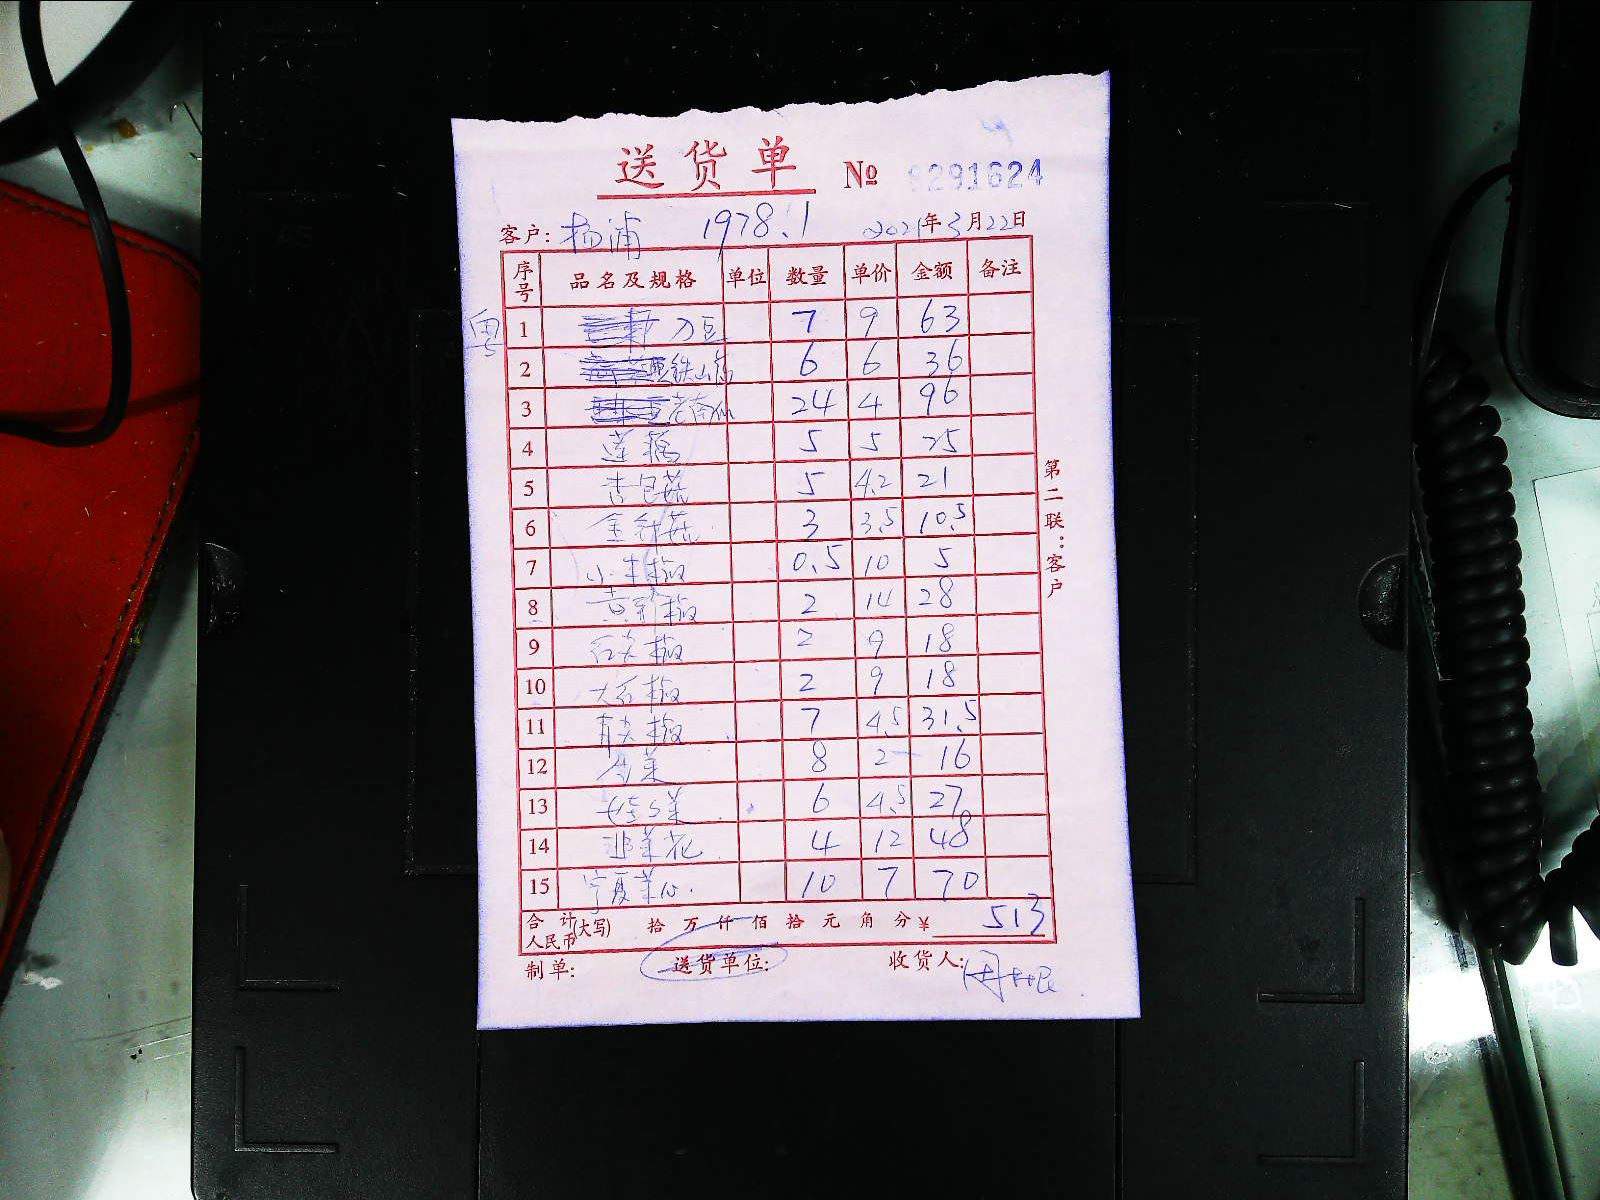 送货单 № 8291624
客户: 杨浦 1978.1 2021年3月22日
序号 品名及规格 单位 数量 单价 金额 备注
粤
1 刀豆 7 9 63
2 铁山药 6 6 36
3 老南瓜 24 4 96
4 莲藕 5 5 25
5 杏包菇 5 4.2 21
6 金针菇 3 3.5 10.5
7 小米椒 0.5 10 5
8 黄彩椒 2 14 28
9 红尖椒 2 9 18
10 大红椒 2 9 18
11 青尖椒 7 4.5 31.5
12 生菜 8 2 16
13 娃娃菜 6 4.5 27
14 韭菜花 4 12 48
15 宁夏菜心 10 7 70
合计人民币(大写) 拾 万 仟 佰 拾 元 角 分 ¥ 513
制单: 送货单位: 收货人:
第二联:客户